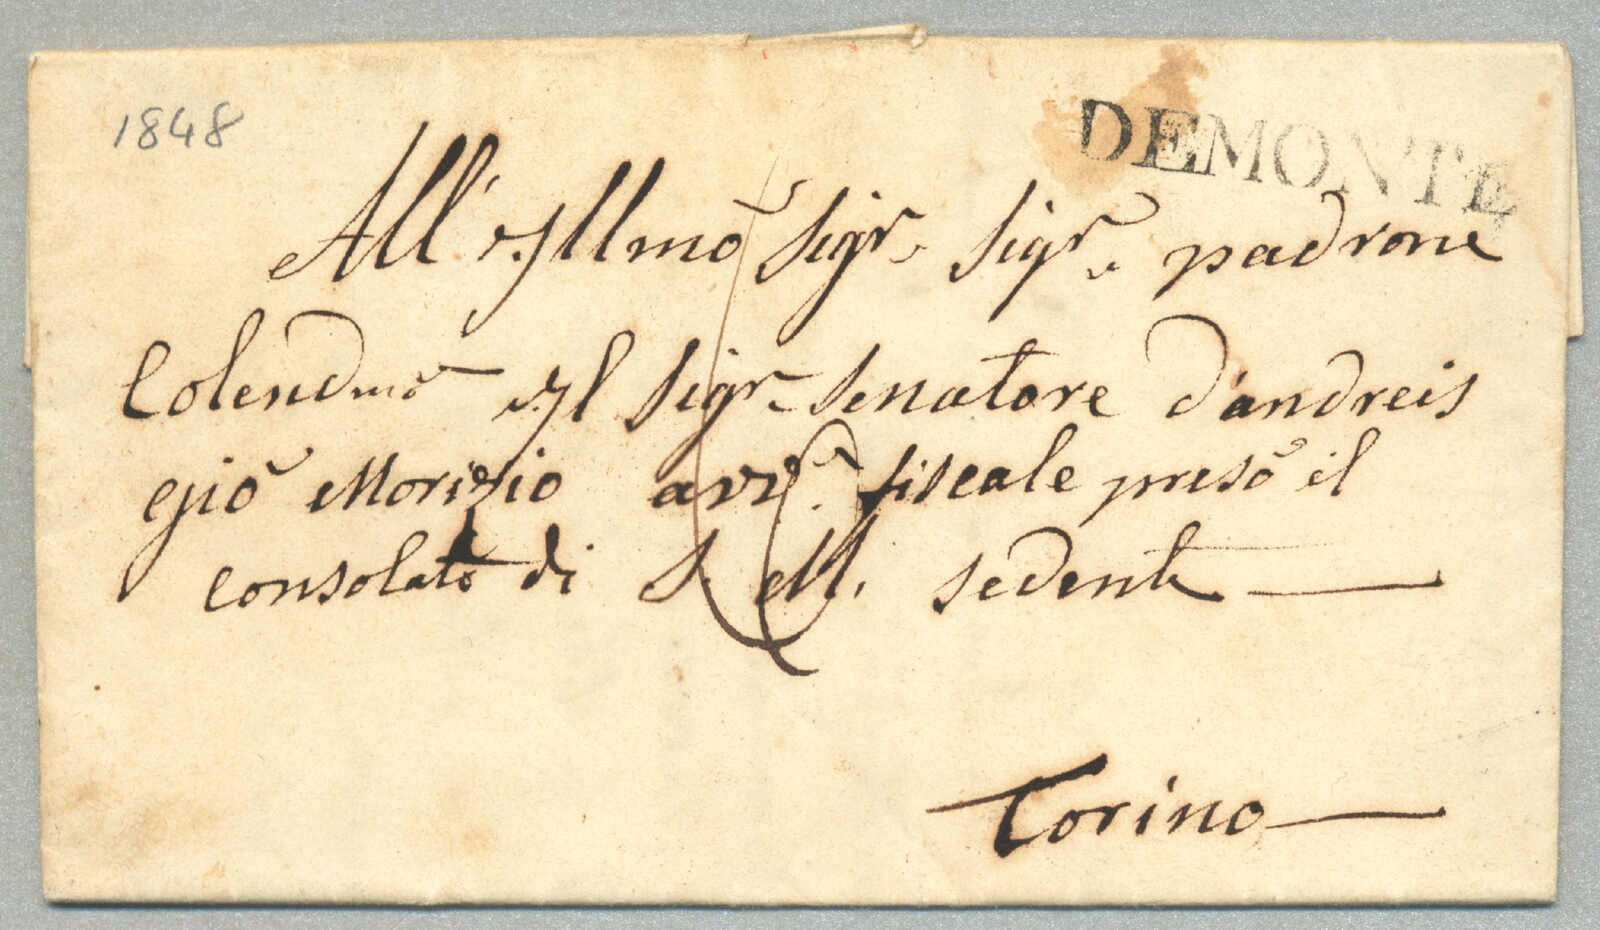 1848
DEMONTE
All' Illmõ Sigr. Sigr. padrone
Colendmo Il Sigr. Senatore d'andreis
gioõ Morizio avv.o fiscale presõ il
consolato di S. M. sedente
Torino